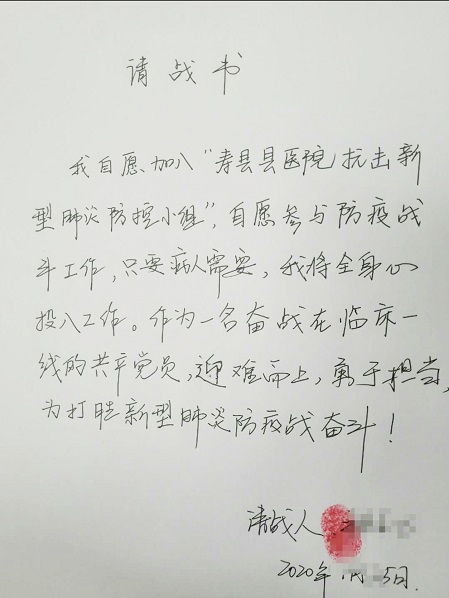 请战书
我自愿加入“寿县县医院抗击新
型肺炎防控小组”,自愿参与防疫战
斗工作,只要病人需要,我将全身心
投入工作。作为一名奋战在临床一
线的共产党员,迎难而上,勇于担当,
为打胜新型肺炎防疫战奋斗!
请战人
2020年 月 5日.